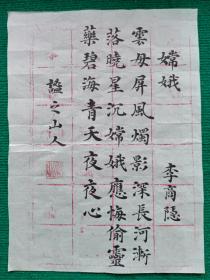 嫦娥
李商隐
雲母屏風燭影深長河漸
落曉星沉嫦娥應悔偷靈
藥碧海青天夜夜心
謐之山人